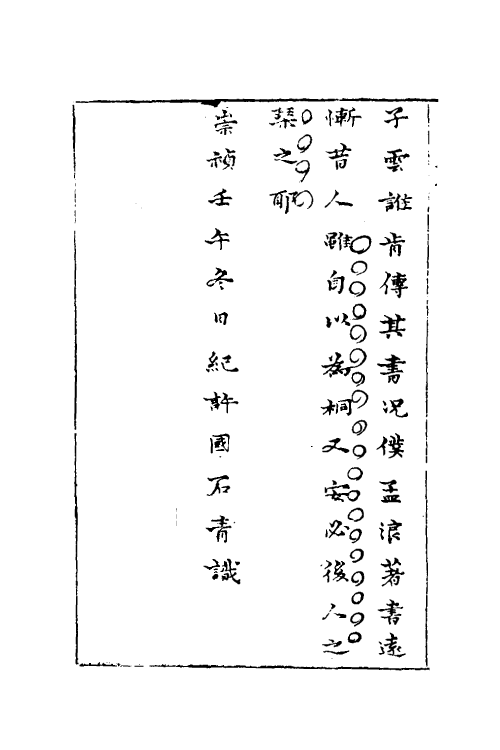 子雲誰肯傳其書况僕孟浪著書遠
慚昔人雖自以為桐又安必後人之
琹之耶
崇禎壬午冬日紀許國石青識